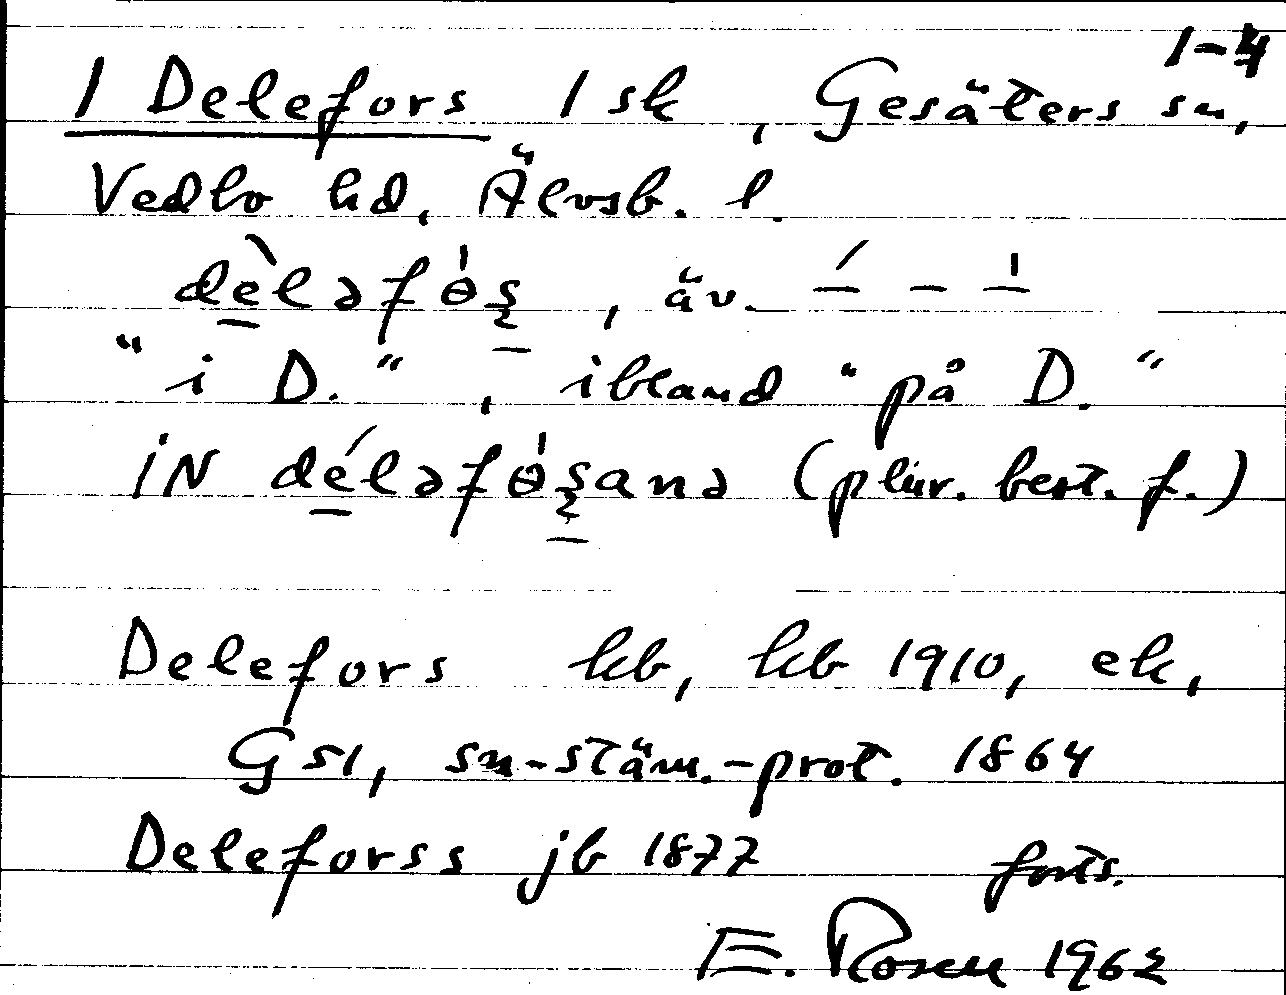 1-4
1 Delefors 1 sk, Gesäters sn,
Vedbo hd, Älvsb. l.
dè̱ləfɵ̍s̱, äv. –́ – –̍
"i D.", ibland "på D."
iN dé̱ləfɵ̍s̱anə (plur. best. f.)
Delefors kb, kb 1910, ek,
GS1, sn-stäm.-prot. 1864
Deleforss jb 1877 forts.
E. Rosen 1962